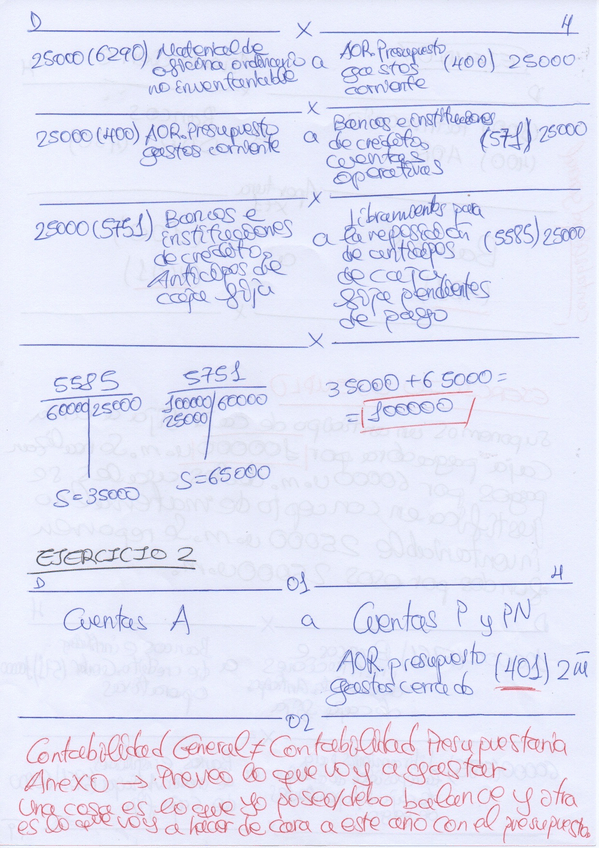 D X H
25000 (6290) Material de oficina ordinario no inventariable a AOR. Presupuesto gastos corriente (400) 25000
X
25000 (400) AOR. Presupuesto gastos corriente a Bancos e instituciones de crédito. cuentas operativas (571) 25000
X
25000 (5751) Bancos e instituciones de crédito. Anticipos de caja fija a Libramientos para la reposición de anticipos de caja fija pendientes de pago (5585) 25000
X
5585
60000 | 25000
S=35000
5751
100000 | 60000
25000
S=65000
35000 + 65000 =
= 100000
EJERCICIO 2
D 01 H
Cuentas A a Cuentas P y PN
AOR. presupuesto
gastos cerrado (401) 2 m
02
Contabilidad General ≠ Contabilidad Presupuestaria
Anexo → Preveo lo que voy a gastar
Una cosa es lo que yo poseo/debo balance y otra
es lo que voy a hacer de cara a este año con el presupuesto